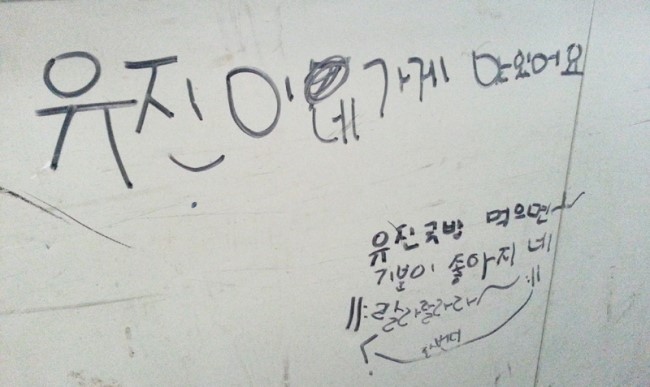 유진이네 가게 맛있어요
유진국밥 먹으면~
기분이 좋아지네
랄라랄라라~